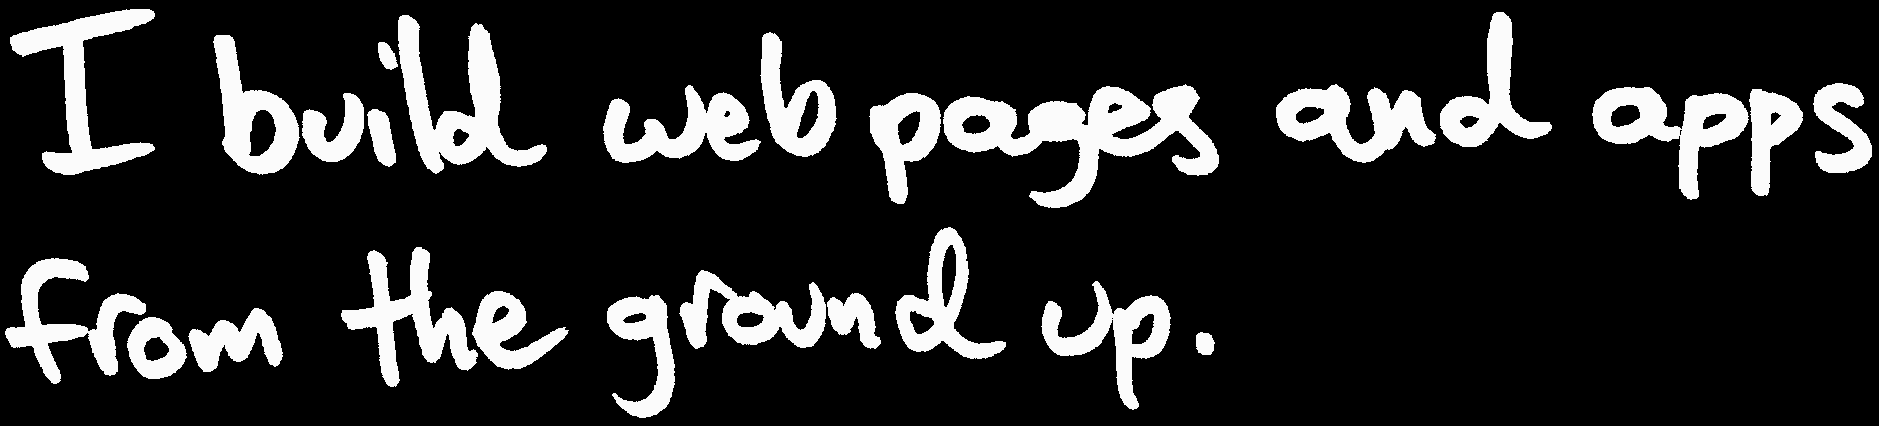 I build web pages and apps
from the ground up.